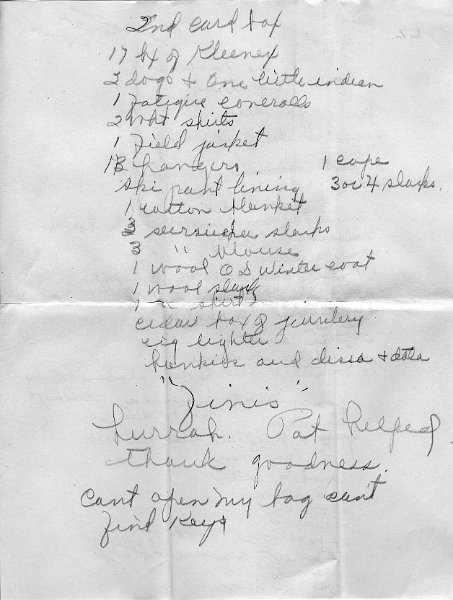 2nd card box
17 bx of Kleenex
2 dogs + one little indian
1 Fatigue coveralls
2 wht shirts
1 Field jacket
18 hangers 1 cape
ski pant lining 3 or 4 slacks.
1 cotton blanket
3 seersucker slacks
3 " blouse
1 wool O D Winter coat
1 wool slacks
1 " shirt
cedar box of jewelery
cig lighter
hankies and + data
"Finis"
hurrah. Pat helped
thank goodness.
cant open my bag can't
find keys